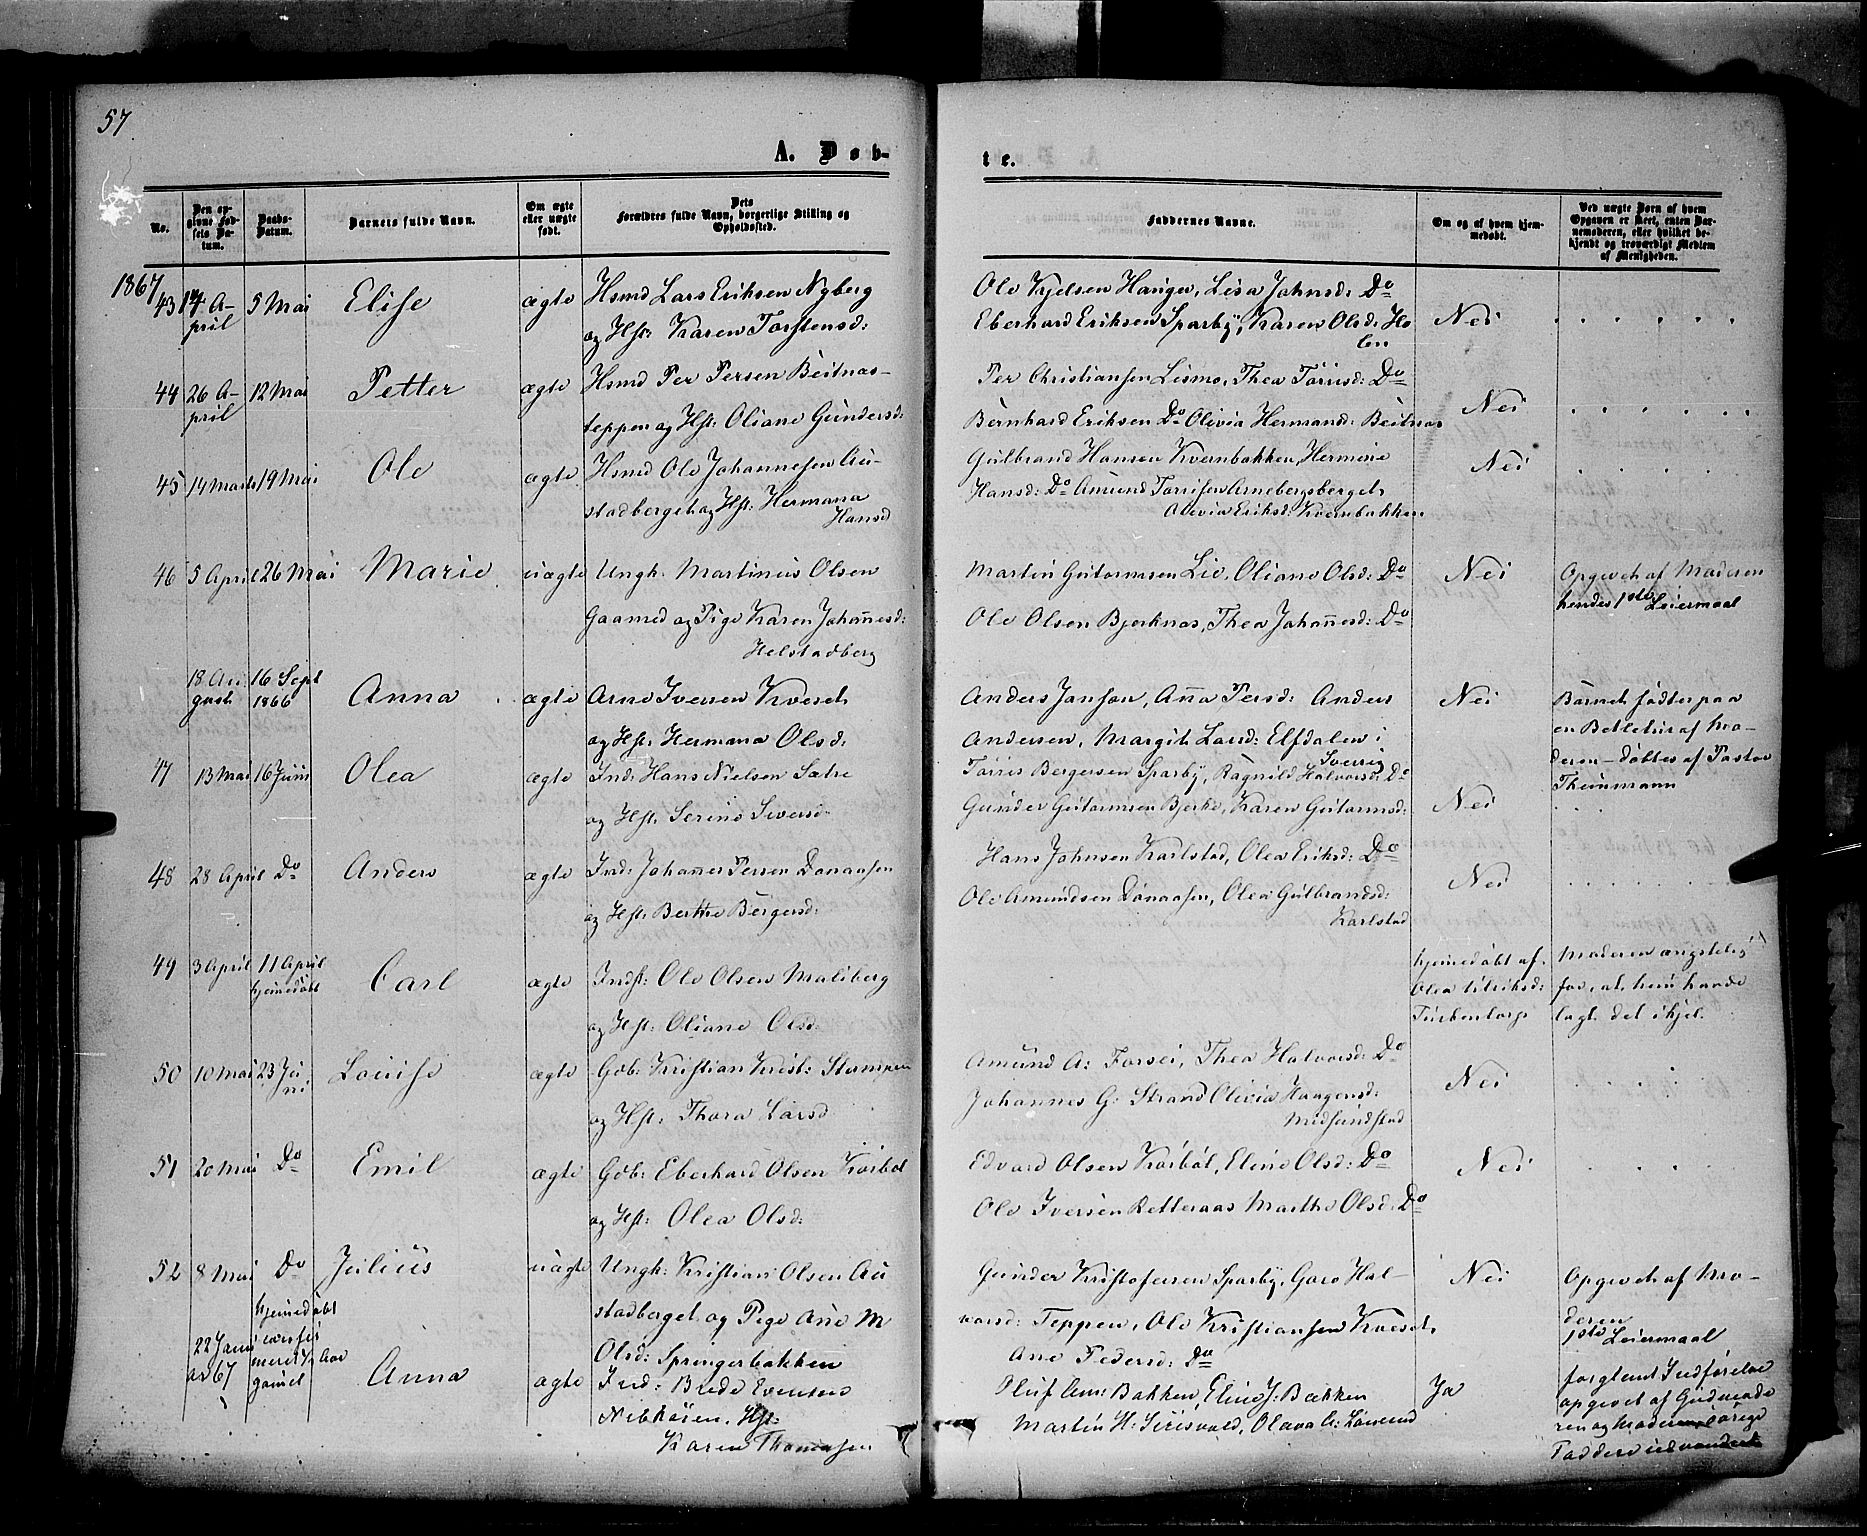 57
A. Døb-
te.
No.
Den opgivne Fødsels Datum.
Daabs-Datum.
Barnets fulde Navn.
Om ægte eller uægte født.
Dets Forældres fulde Navn, borgerlige Stilling og Opholdssted.
Faddernes Navne.
Om og af hvem hjemmedøbt.
Ved uægte Børn af hvem Opgaven er skeet, enten Barnemoderen, eller hvilket bekjendt og troværdigt Medlem af Menigheden.
1867
43 14 April 5 Mai Elise ægte Hsmd Lars Eriksen Nyberg
og Hst: Karen Torstensd:
Ole Kjelsen Hanger, Lisa Johnsd: Do
Eberhard Eriksen Sparby, Karen Olsd: Ho
len
Nei
44 26 April 12 Mai Petter ægte Hsmd Per Persen Beitnas-
teppen og Hst: Oliane Gundersd:
Per Christiansen Lismo, Thea Törrisd: Do
Bernhard Eriksen Do Olivia Hermansd: Beitnas
Nei
45 14 Marts 19 Mai Ole ægte Hsmd Ole Johannesen Au-
stadberget og Hst: Hermana
Hansd
Gulbrand Hansen Kvernbakken, Hermine
Hansd: Do Amund Torrisen Arnebergsberget,
Olivia Eriksd: Kvernbakken
Nei
46 5 April 26 Mai Marie uægte Ungk. Martinus Olsen
Gaamed og Pige Karen Johannesd:
Helstadberg
Martin Guttormsen Lie, Oliane Olsd: Do
Ole Olsen Bjerknas, Thea Johannesd: Do
Nei
Opgivet af Moderen
hendes 1ste Leiermaal
18 August 16 Sept 1866 Anna ægte Arne Iversen Kveset
og Hst: Hermana Olsd:
Anders Jonson, Anna Persd: Anders
Andersen, Margit Larsd: Elfdalen i
Sverrig
Nei
Barnet födtes paa
en Betletur af Mo-
deren - döbtes af Pastor
Theinmann
47 13 Mai 16 Juni Olea ægte Ind: Hans Nielsen Sætre
og Hst: Serine Siversd:
Törris Bergersen Sparby, Ragnild Halvorsd: Do
Gunder Guttormsen Bjerke, Karen Guttormsd:
Nei
48 28 April Do Anders ægte Ind: Johannes Persen Donaasen
og Hst: Berthe Bergersd:
Hans Johnsen Karlstad, Olea Eriksd: Do
Ole Amundsen Donaasen, Olea Gulbrandsd:
Karlstad
Nei
49 3 April 11 April hjemedöbt Carl ægte Indst: Ole Olsen Maliberg
og Hst: Oliane Olsd:
hjemedöbt af
Olea Ulriksd:
Turbentorp
Moderen ængstelig
for, at hun havde
lagt det ihjel.
50 10 Mai 23 Juni Louise ægte Gob: Kristian Krist: Stumpen
og Hst: Thora Larsd
Amund A: Forsei, Thea Halvorsd: Do
Johannes G: Strand Olivia Haagensd:
Midsundstad
Nei
51 20 Mai Do Emil ægte Gob: Eberhard Olsen Körböl
og Hst: Olea Olsd:
Edvard Olsen Körböl, Eline Olsd: Do
Ole Iversen Retteraas Marthe Olsd: Do
Nei
52 8 Mai Do Julius uægte Ungk: Kristian Olsen Au
stadberget og Pige Ane M
Olsd: Springerbakken
Gunder Kristofersen Sparby, Goro Hal-
vorsd: Teppen, Ole Kristiansen Kveset,
Ane Pedersd: Do
Nei
Opgivet af Mo-
deren
1ste Leiermaal
22 Juni 67 hjemedöbt
gamel Anna ægte Ind: Brede Evensen
Nibkoien, Hst:
Karen Thomasen
Oluf Am: Bakken, Eline J: Bakken
Martin H: Siirsvold, Olava A: Lönrud
Ja
forglemt Indförelse
opgivet af Gudmode
ren og Moderen övrige
Faddere udvandret